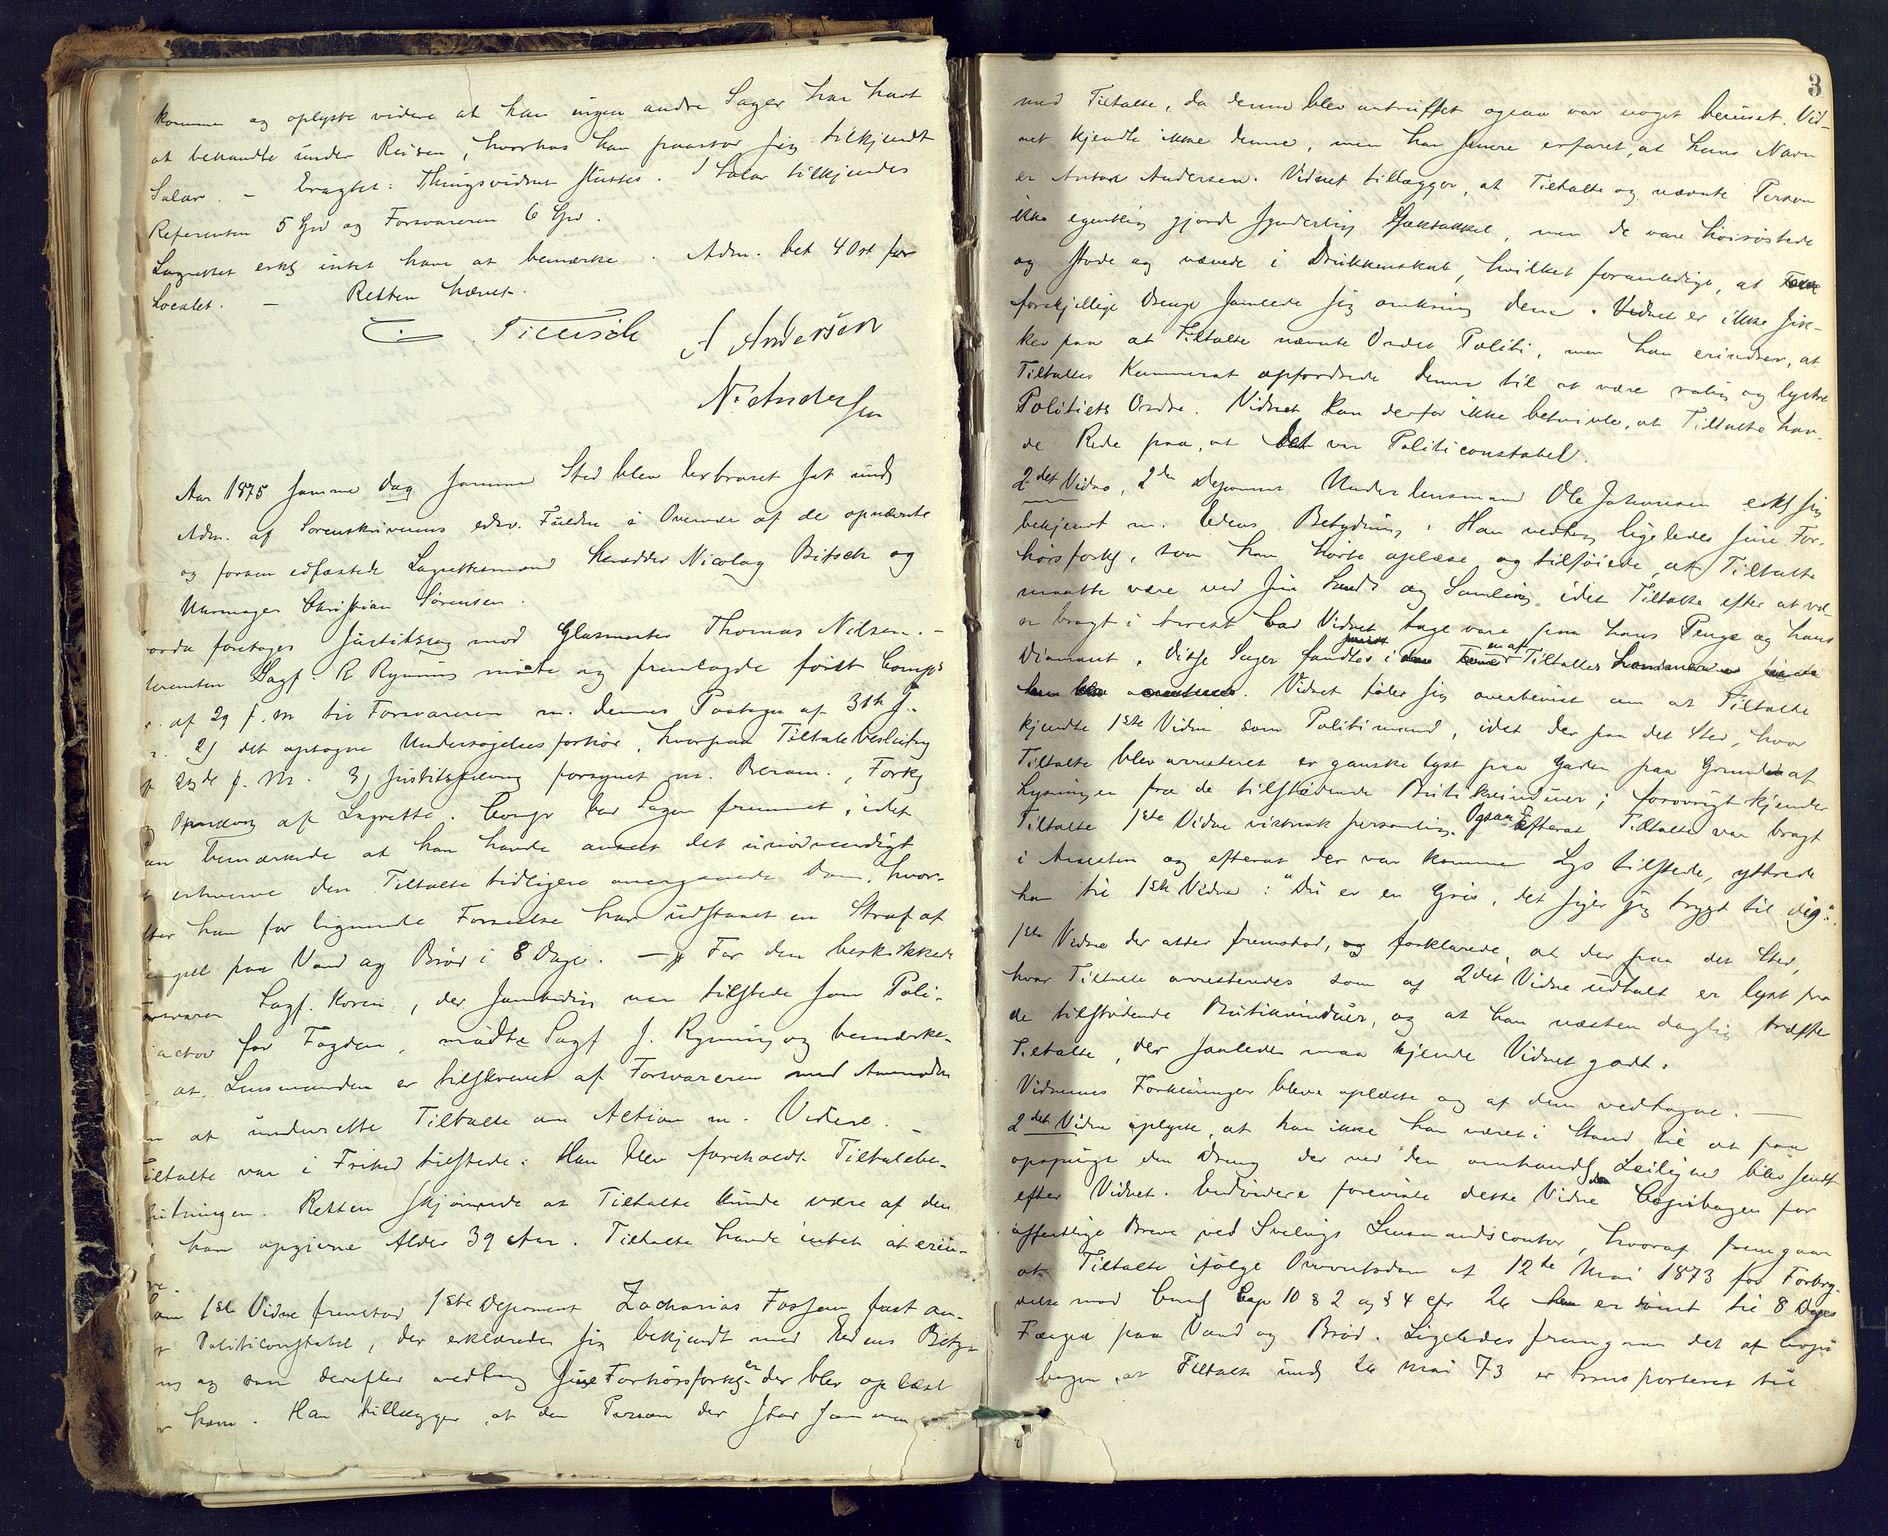 komme og oplyste videre at han ingen andre Sager har havt
at behandle under Reisen, hvorhos han paastod sig tilkjendt
Salær. – Eragtet: Thingsvidnet sluttes. I Salær tilkjendes
Referenten 5 Spd og Forsvareren 6 Spd.
Lagrettet erkl intet have at bemærke. Adm. bet 4 Ort for
Localet. – Retten hævet.
Tillisch A Andersen
N. Andersen
Aar 1875 samme Dag samme Sted blev Extraret sat under
Adm. af Sorenskriverens edsv. Fuldm i Overvær af de opnævnte
og forsaavidt edfæstede Lagrettesmænd Nicolay Bitsch og
Uhrmager Christian Sørensen.
foretoges Justitssag mod Glasmester Thomas Nilsen. –
Sagf. R Rynning mødte og fremlagde først
af 29 f. M til Forsvareren m. dennes Paategn af 31te
2) det optagne Undersøgelsesforhør, hvorpaa Tiltalebeslutng
23de f. M. 3) Justitsstevng forsynet m. Beram., Forky
og Opnævng af Lagrette. bad Sagen fremmet, idet
han bemærkede at han havde anseet det unødvendigt
at erhverve den Tiltalte tidligere overgaaede Dom, hvor-
efter han for lignende Forseelse har udstaaet en Straf af
Fængsel paa Vand og Brød i 8 Dage. – For den beskikkede
Forsvarer Sagf. Koren, der samtidig var tilstede som Poli-
actor for Fogden, mødte Sagf J. Rynning og bemærke-
at Lensmanden er tilskrevet af Forsvareren med Anmodn
om at underrette Tiltalte om Aktion m. Videre. –
Tiltalte var i Frihed tilstede. Han blev foreholdt Tiltalebe-
slutningen. Retten skjønnede at Tiltalte kunde være af den
af ham opgivne Alder 39 Aar. Tiltalte havde intet at erin-
Som 1ste Vidne fremstod 1ste Deponent Zacharias Fossum, fast an-
Politiconstabel, der erklærede sig bekjendt med Edens Betyd-
ng og som derefter vedtog sine Forhørsforkler der blev oplæst
for ham. Han tillægger at den Person der stod sammen
3
med Tiltalte, da denne blev antruffet ogsaa var noget beruset. Vid-
net kjendte ikke denne, men har senere erfaret, at hans Navn
er Anton Andersen. Vidnet tillægger, at Tiltalte og nævnte Person
ikke egentlig gjorde synderlig Spektakkel, men de vare høirøstede
og stode og vævede i Drukkenskab, hvilket foranledige, at
forskjellige Drenge samlede sig omkring dem. Vidnet er ikke sik-
ker paa at Tiltalte nævnte Ordet Politi, men han erindrer, at
Tiltaltes Kammerat opfordrede denne til at være rolig og lystre
Politiets Ordre. Vidnet kan derfor ikke betvivle, at Tiltalte hav-
de Rede paa, at det var Politiconstabel.
2det Vidne, 2den Deponent Underlensmand Ole Johansen erkl sig
bekjendt m. Edens Betydning. Han vedtog ligeledes sine For-
hørsforkl, som han hørte oplæse og tilføiede, at Tiltalte
maatte være ved sin Sands og Samling, idet Tiltalte efter at væ-
re bragt i Arrest bad Vidnet tage vare paa hans Penge og hans
Diamant. Disse Sager fandtes i Tiltaltes
Vidnet føler sig overbevist om at Tiltalte
kjendte 1ste Vidne som Politimand, idet der paa det Sted, hvor
Tiltalte blev arresteret er ganske lyst paa Gaden paa Grund af
Lysningen fra de tilstødende Butikvinduer; forøvrigt kjender
Tiltalte 1ste Vidne vistnok personlig. Ogsaa Efterat Tiltalte var bragt
i Arresten og efterat der var kommen Lys tilstede, yttrede
han til 1ste Vidne: "Du er en Gris, det siger jeg trygt til dig".
1ste Vidne der atter fremstod, og forklarede, at der paa det Sted,
hvor Tiltalte arresteredes som af 2det Vidne udtalt er lyst fra
de tilstødende Butikvinduer, og at han næsten daglig træffer
Tiltalte, der saaledes maa kjende Vidnet godt.
Vidnernes Forklaringer bleve oplæste og af dem vedtagne. –
2det Vidne oplyste, at han ikke har været i Stand til at faa
opspurgt den Dreng der ved den omhandl Leilighed blev sendt
efter Vidnet. Endvidere foreviste dette Vidne den Copibogen for
offentlige Breve ved Svelvigs Lensmandscontor, hvoraf fremgaar
at Tiltalte ifølge Overretsdom af 12te Mai 1873 for Forbry-
delse mod Cap 10 § 2 og § 4 cfr er dømt til 8 Dages
Fængsel paa Vand og Brød. Ligeledes fremgaar det af Copi
bogen, at Tiltalte under 26 Mai 73 er transporteret til